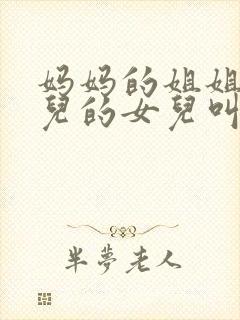 妈妈的姐姐
兒的女兒叫
半夢老人